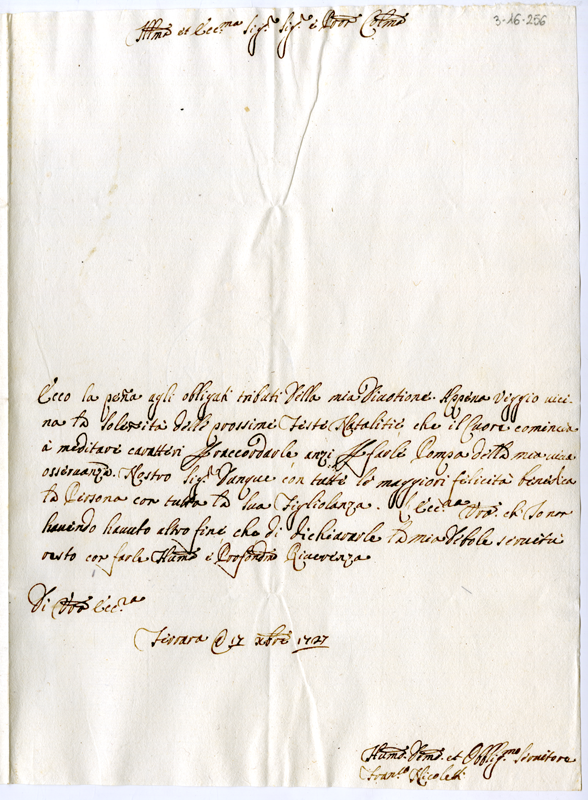 3-16-256
Illmo et Ecc.ma Sig.r Sig.r e Pron Colmo
Ecco la peña agli obligati tributi della mia Divotione. Appena veggio vici
na la solenità delle prossime Feste Natalitie che il Cuore comincia
à meditare caratteri p raccordarle anzi p farle Pompa della mia viva
osservanza. Nostro Sig.re Dunque con tutte le maggiori felicità benedica
la Persona con tutta la sua Figliolanza. L'Ecc.za Vra, ch' Io non
havendo havuto altro fine che di dichiararle la mia debole servitù
resto con farle Humª e Profondª Riverenza
Di Vra Ecc.za
Ferrara @ 17 xbre 1727
Hum.o Dmo. et Obblig.mo Servitore
Fran.co Nicoleti